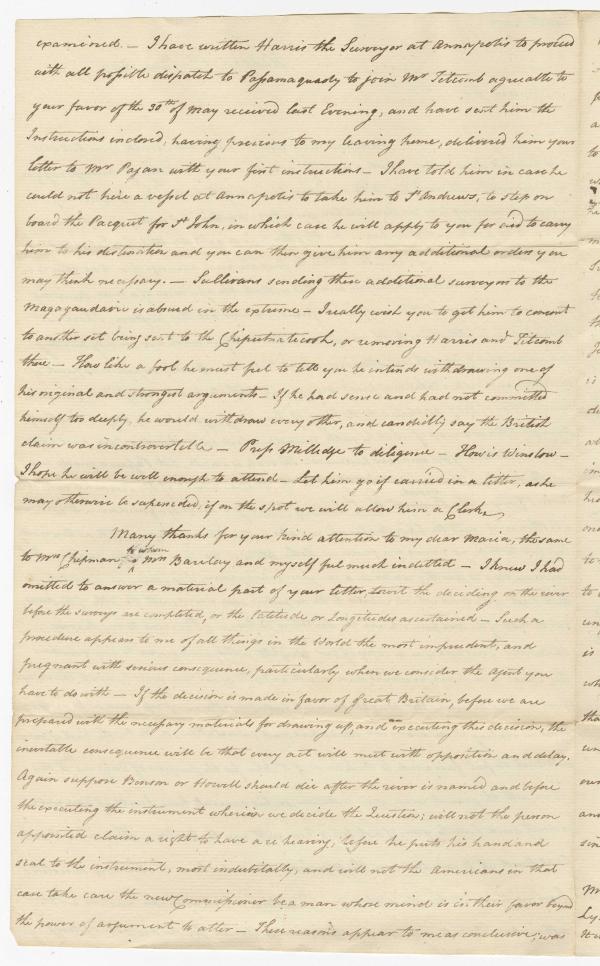 examined. — I have written Harris the Surveyor at Annapolis to proceed
with all possible dispatch to Passamaquady to join Mr Titcomb agreeable to
your favor of the 30th of May received last Evening, and have sent him the
Instructions inclosed, having previous to my leaving home, delivered him your
letter to Mr Pagan with your first instructions — I have told him in case he
could not hire a vessel at Annapolis to take him to St Andrews, to step on
board the Pacquet for St John, in which case he will apply to you for aid to carry
him to his destination and you can then give him any additional orders you
may think necessary. — Sullivans sending these additional surveyors to the
Magagaudavic is absurd in the extreme — I really wish you to get him to consent
to another set being sent to the Chiputnaticook, or removing Harris and Titcomb
there — How like a fool he must feel to tell you he intends withdrawing one of
his original and strongest arguments — If he had sense and had not committed
himself too deeply, he would withdraw every other, and candidly say the British
claim was incontrovertible — Press Milledge to diligence — How is Winslow —
I hope he will be well enough to attend — Let him go if carried in a litter, as he
may otherwise be superceded, if on the spot we will allow him a Clerk,
Many thanks for your kind attention to my dear Maria, the same
to Mrs Chipman to whom Mrs Barclay and myself feel much indebted — I knew I had
omitted to answer a material part of your letter, towit the deciding on the river
before the surveys are completed, or the Latitude or Longitudes ascertained — Such a
procedure appears to me of all things in the World the most imprudent, and
pregnant with serious consequence, particularly when we consider the Agent you
have to do with — If the decision is made in favor of Great Britain, before we are
prepared with the necessary materials for drawing up, and executing this decision, the
inevitable consequence will be that every act will meet with opposition and delay.
Again suppose Benson or Howell should die after the river is named and before
the executing the instrument wherein we decide the Question; will not the person
appointed claim a right to have a re hearing, before he puts his hand and
seal to the instrument, most indubitably, and will not the Americans in that
case take care the new Commissioner be a man whose mind is in their favor beyond
the power of argument to alter — These reasons appear to me as conclusive; was